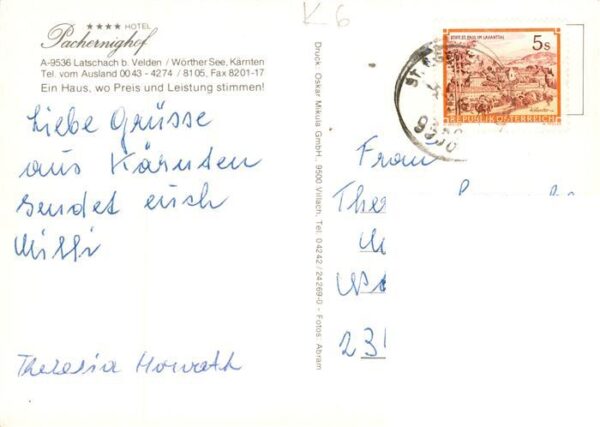 K 6
★★★★ HOTEL
Pachernighof
A-9536 Latschach b. Velden / Wörther See, Kärnten
Tel. vom Ausland 0043 - 4274 / 8105, Fax 8201-17
Ein Haus, wo Preis und Leistung stimmen!
Liebe Grüsse
aus Kärnten
sendet euch
Theresia Horvath
Druck: Oskar Mikula GmbH., 9500 Villach, Tel. 04242 / 24269-0 - Fotos: Abram
STIFT ST. PAUL IM LAVANTTAL
5 s
REPUBLIK ÖSTERREICH
Frau